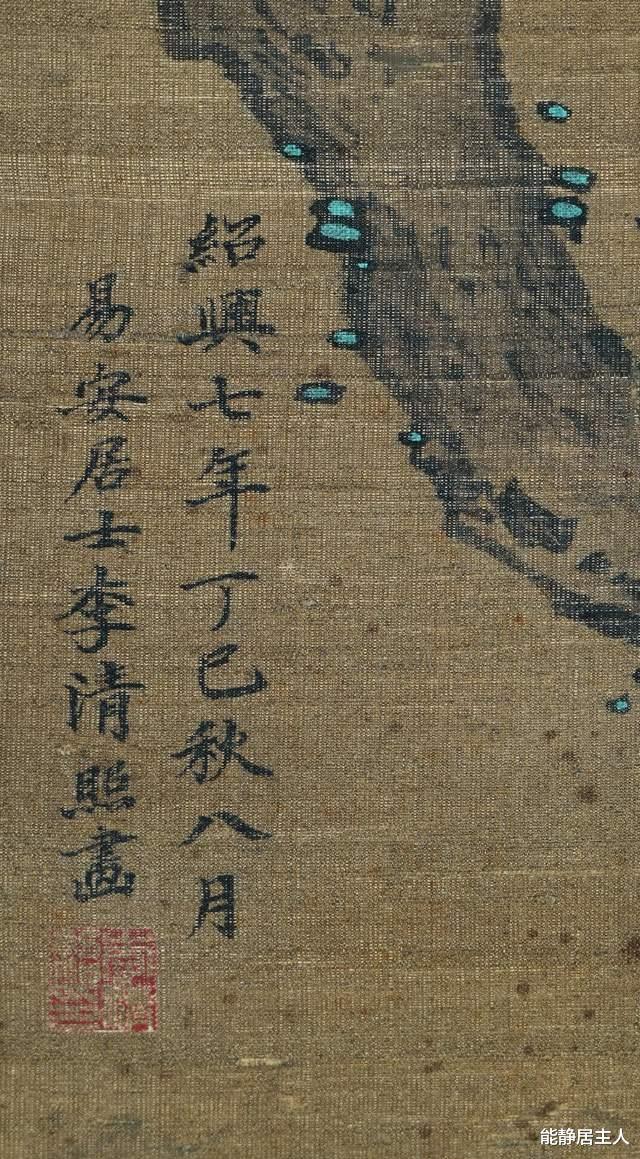 紹興七年丁巳秋八月
易安居士李清照畫
能静居主人